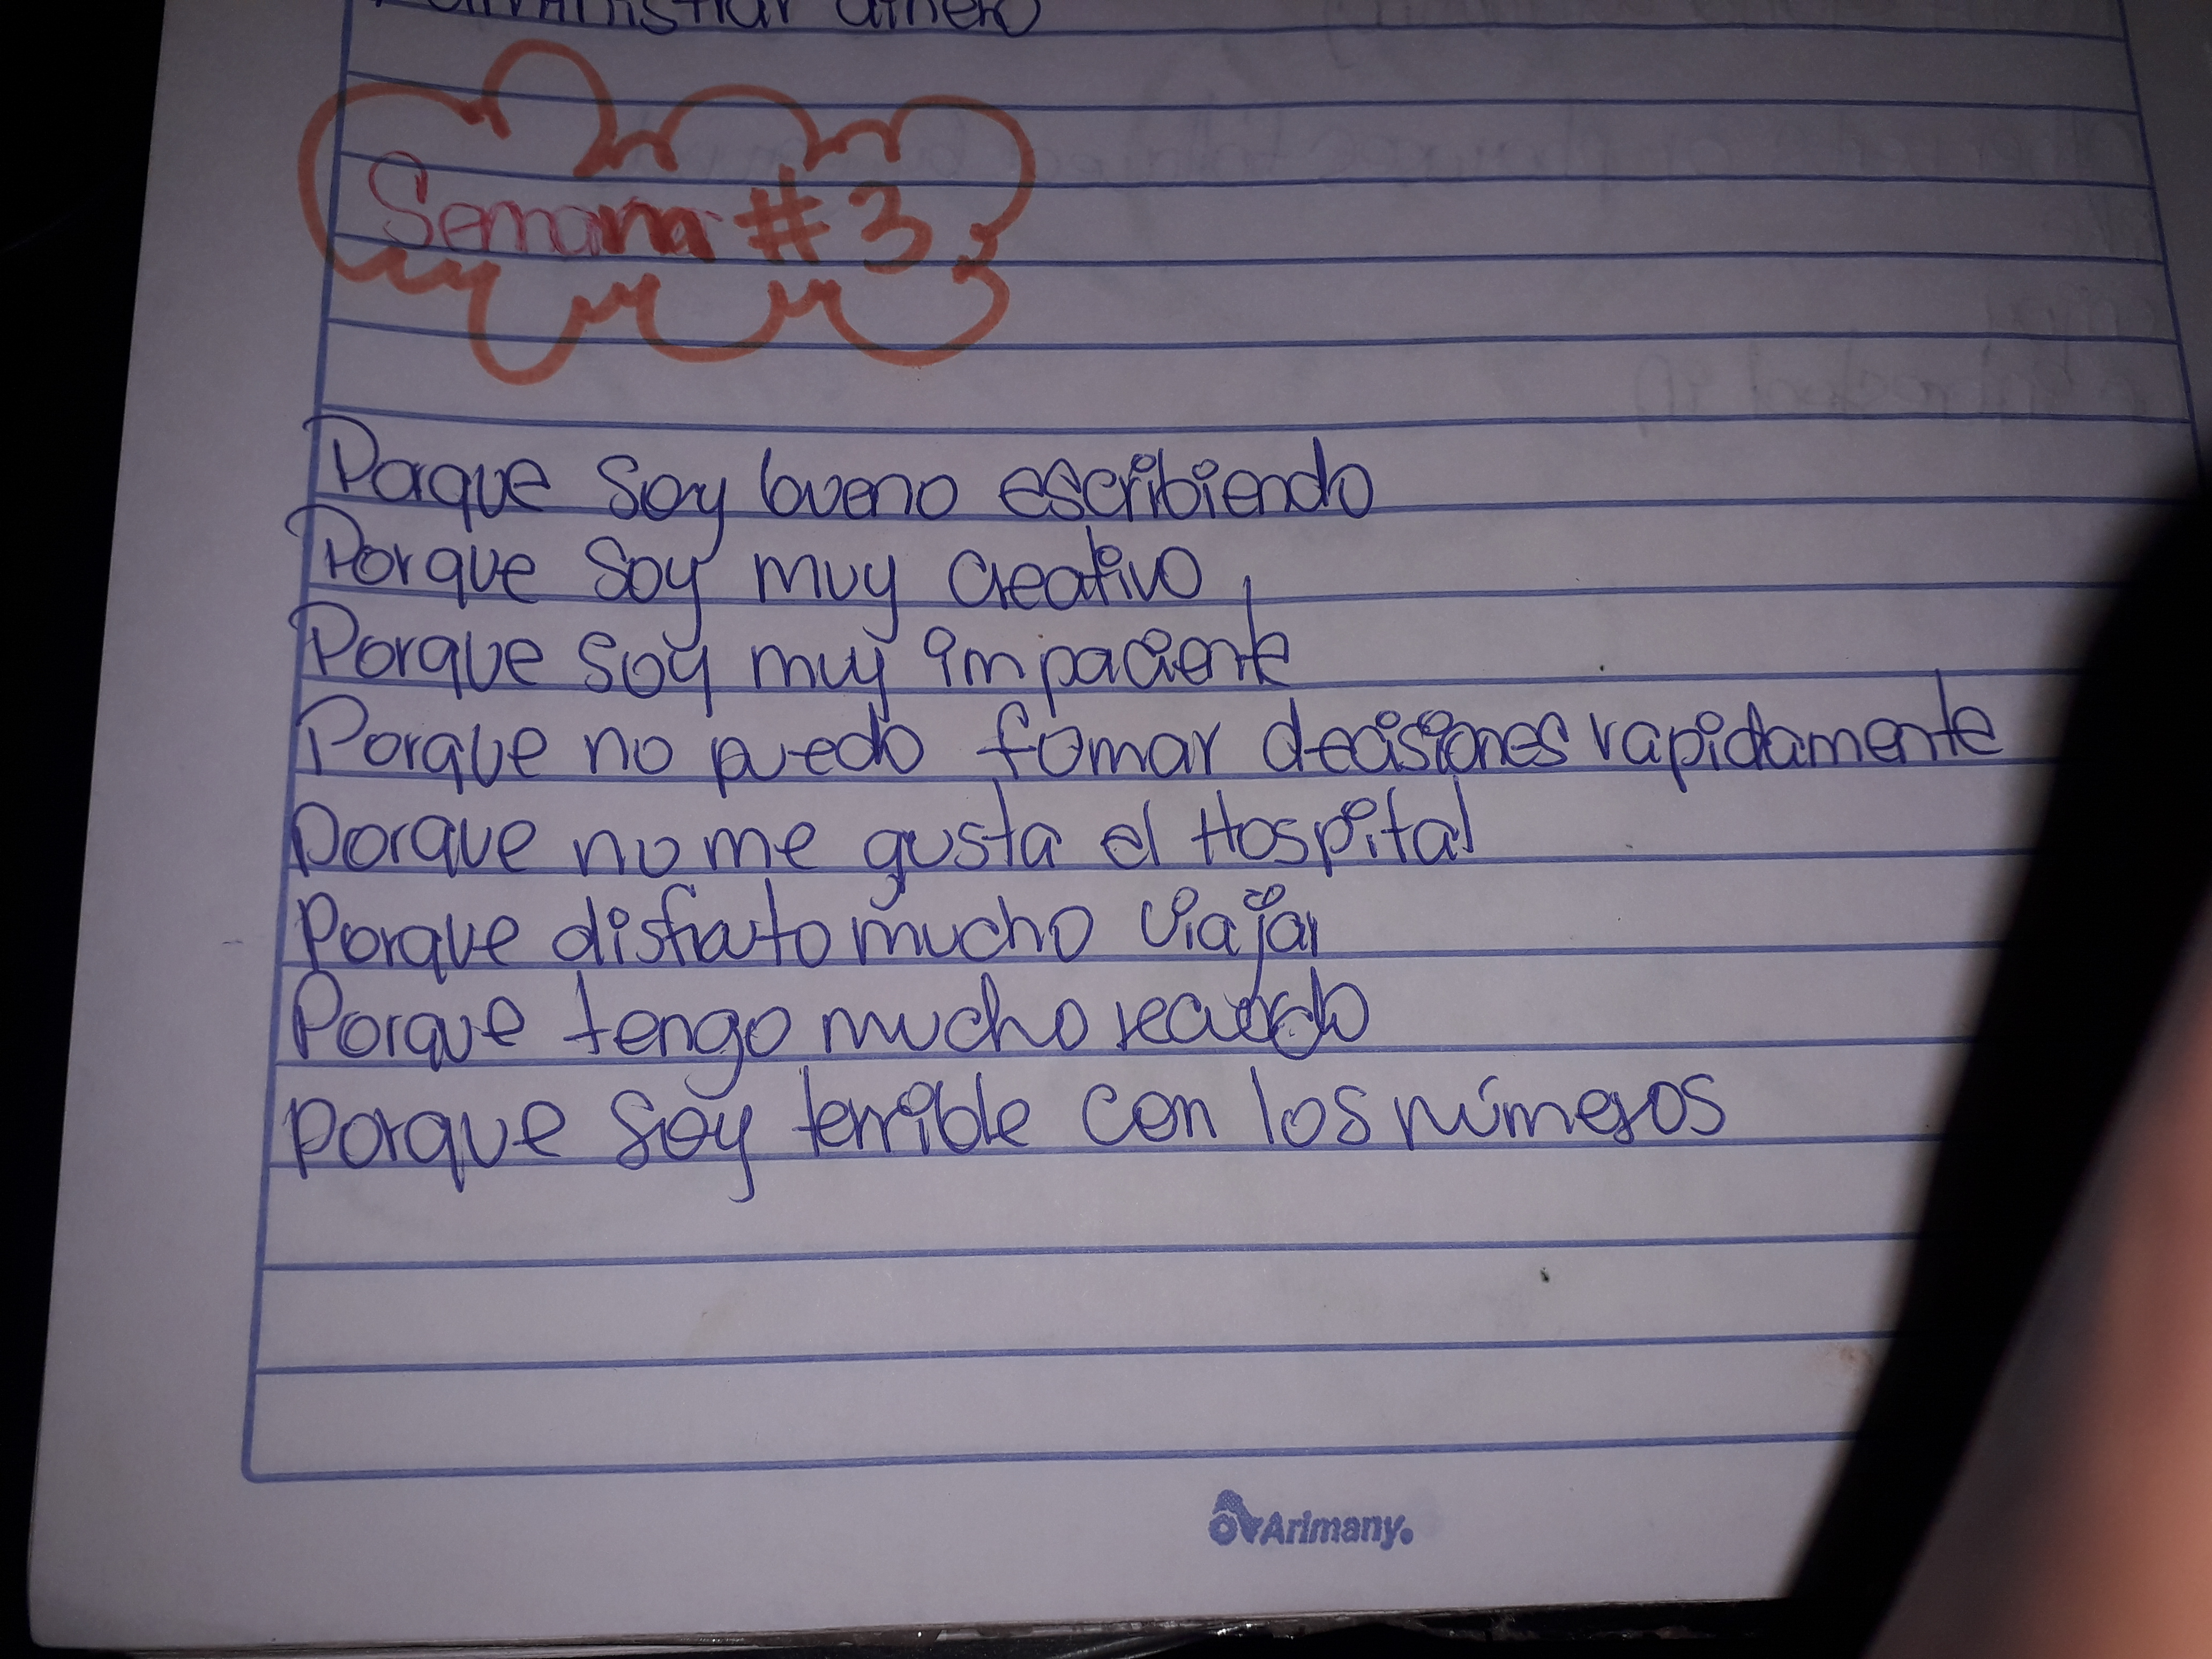 administrar dinero
Semana #3
Porque soy bueno escribiendo
Porque soy muy creativo
Porque soy muy impaciente
Porque no puedo tomar decisiones rapidamente
Porque no me gusta el Hospital
Porque disfruto mucho viajar
Porque tengo mucho recuerdo
porque soy terrible con los números
Arimany.